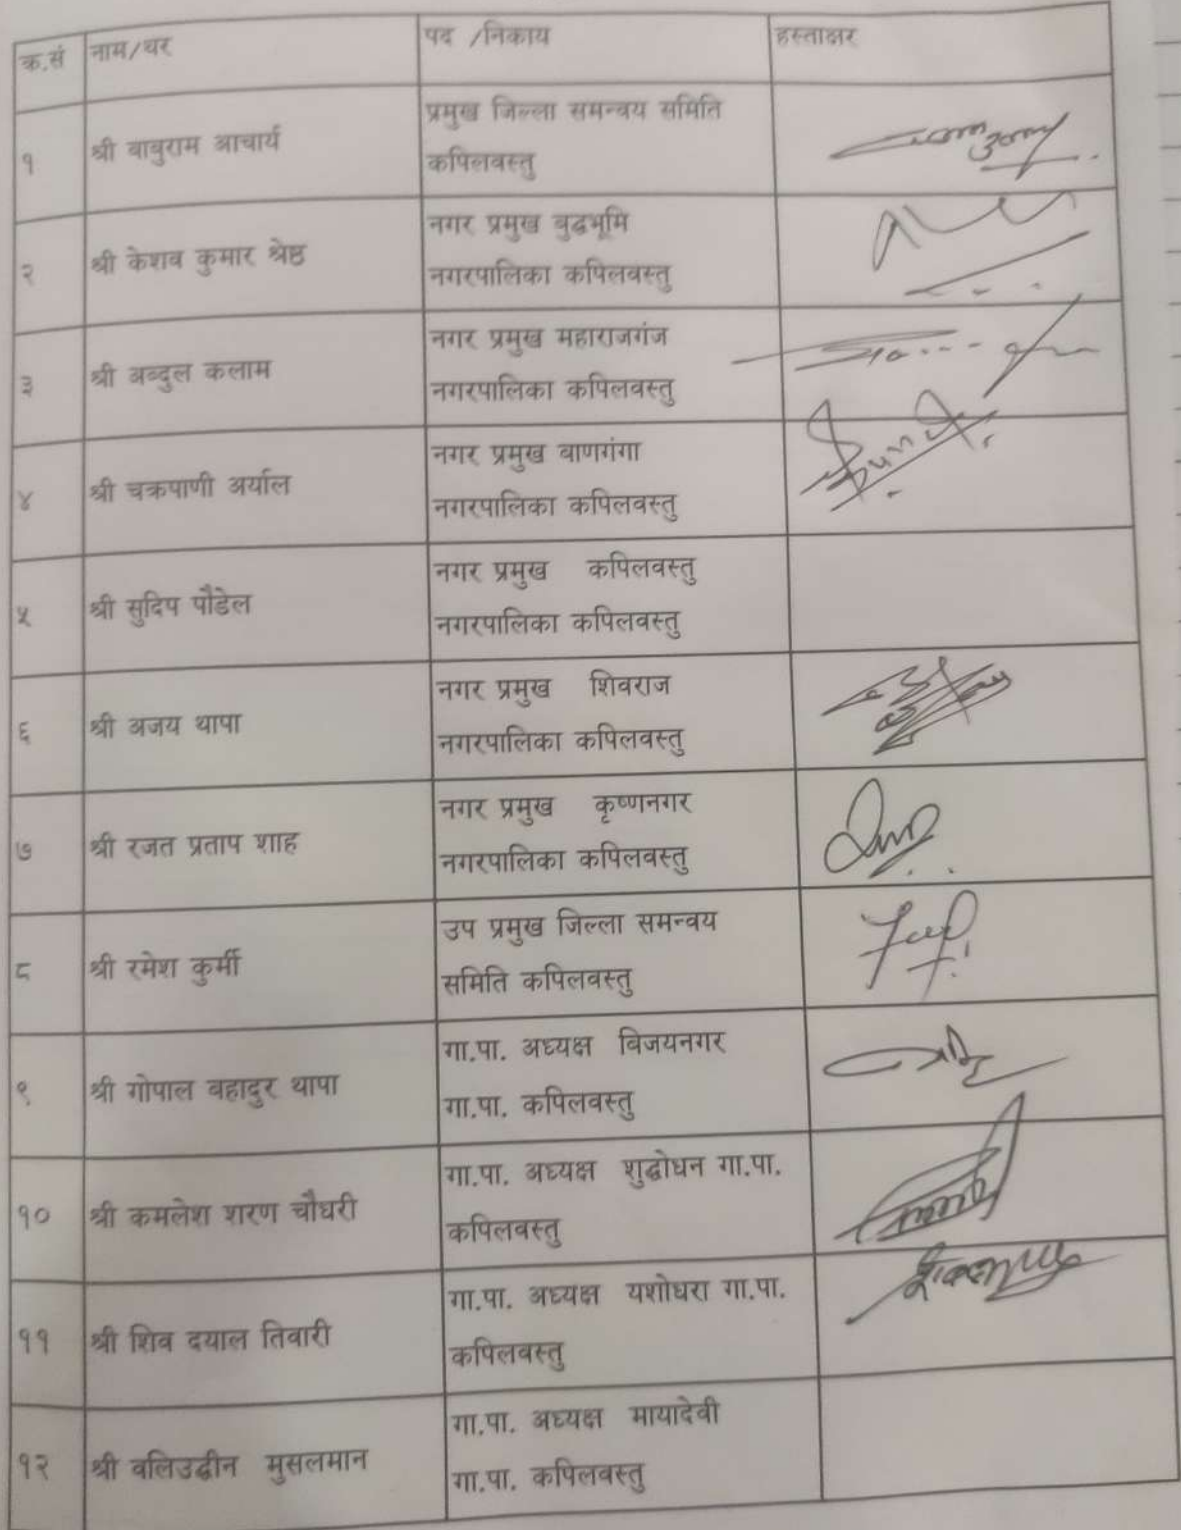 क्र.सं नाम/थर पद /निकाय हस्ताक्षर
१ श्री बाबुराम आचार्य प्रमुख जिल्ला समन्वय समिति
कपिलवस्तु
२ श्री केशव कुमार श्रेष्ठ नगर प्रमुख बुद्धभूमि
नगरपालिका कपिलवस्तु
३ श्री अब्दुल कलाम नगर प्रमुख महाराजगंज
नगरपालिका कपिलवस्तु
४ श्री चक्रपाणी अर्याल नगर प्रमुख बाणगंगा
नगरपालिका कपिलवस्तु
५ श्री सुदिप पौडेल नगर प्रमुख कपिलवस्तु
नगरपालिका कपिलवस्तु
६ श्री अजय थापा नगर प्रमुख शिवराज
नगरपालिका कपिलवस्तु
७ श्री रजत प्रताप शाह नगर प्रमुख कृष्णनगर
नगरपालिका कपिलवस्तु
८ श्री रमेश कुर्मी उप प्रमुख जिल्ला समन्वय
समिति कपिलवस्तु
९ श्री गोपाल बहादुर थापा गा.पा. अध्यक्ष बिजयनगर
गा.पा. कपिलवस्तु
१० श्री कमलेश शरण चौधरी गा.पा. अध्यक्ष शुद्धोधन गा.पा.
कपिलवस्तु
११ श्री शिव दयाल तिवारी गा.पा. अध्यक्ष यशोधरा गा.पा.
कपिलवस्तु
१२ श्री वलिउद्दीन मुसलमान गा.पा. अध्यक्ष मायादेवी
गा.पा. कपिलवस्तु